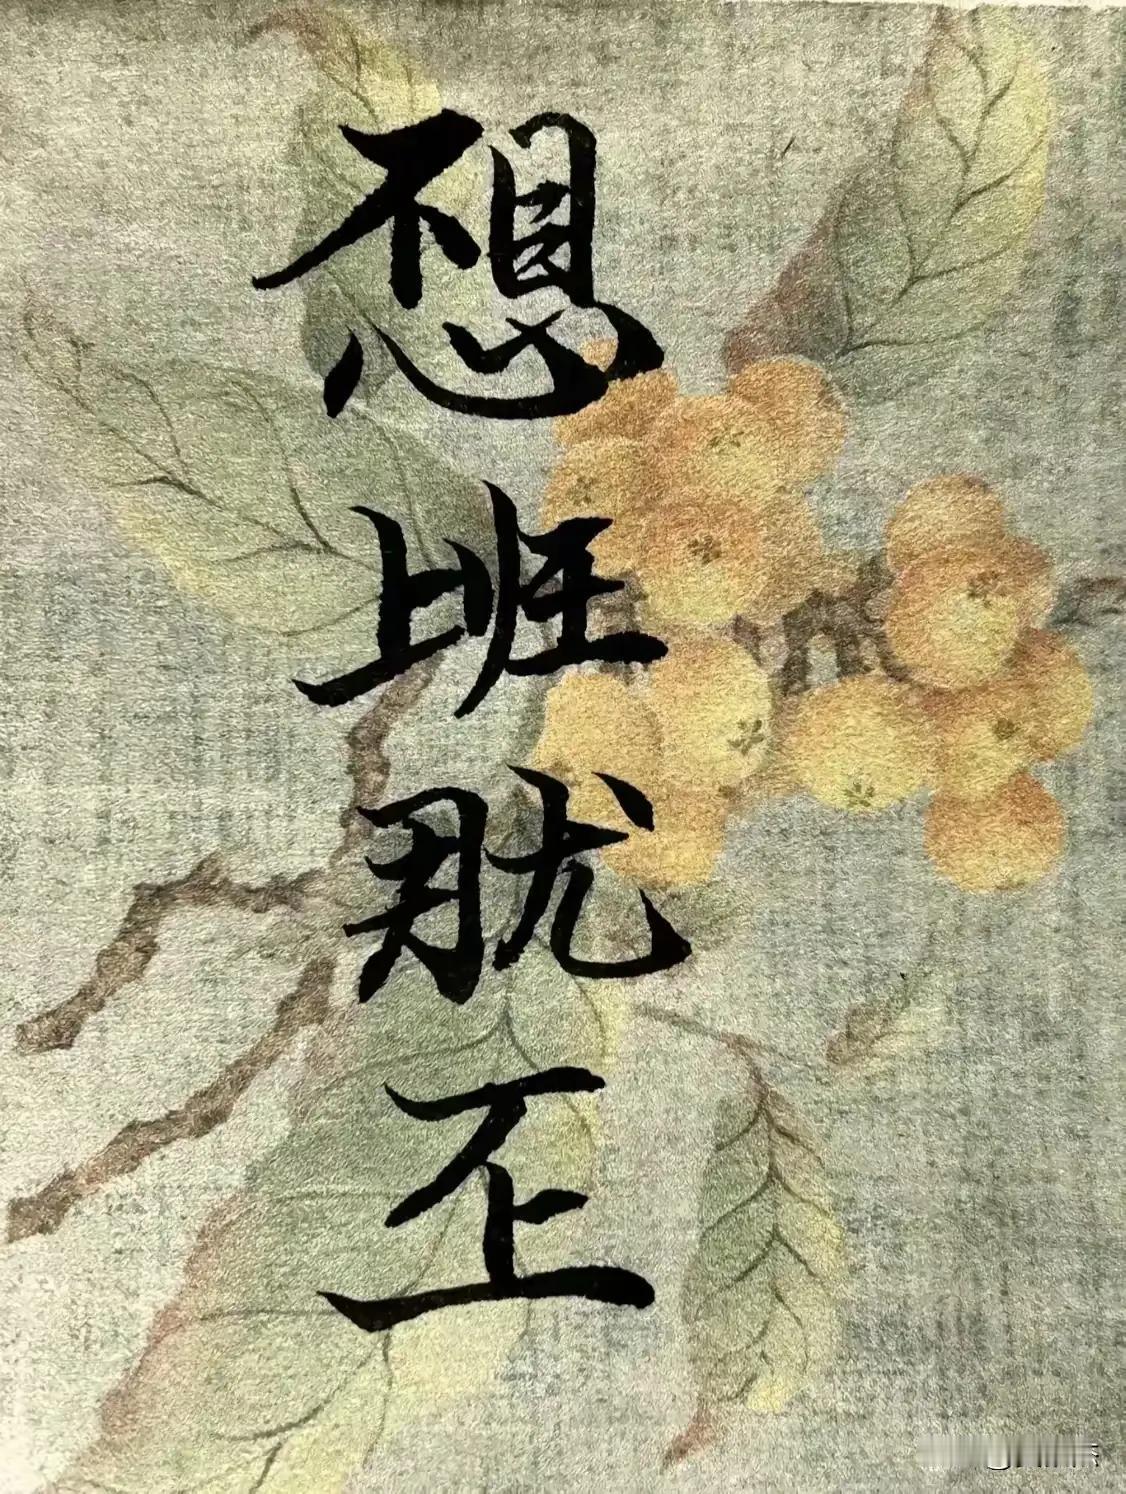 不想上班就不上